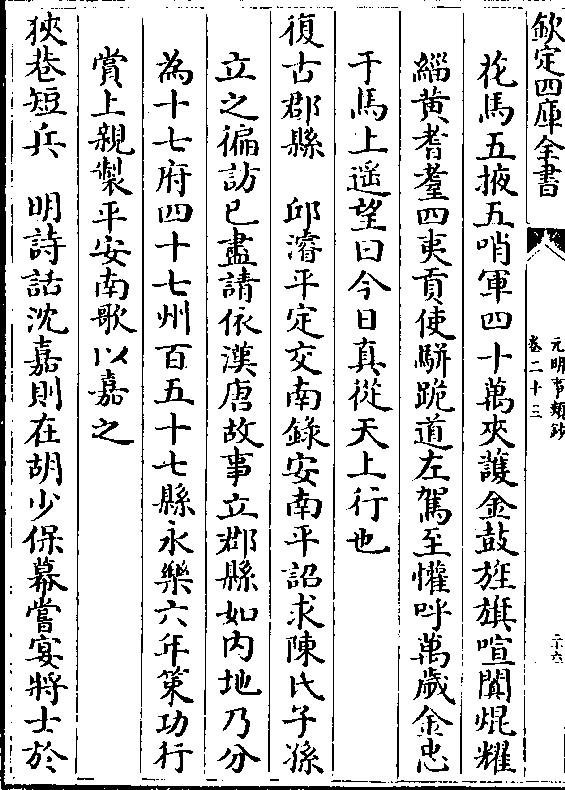 欽定四庫全書
元明事類鈔
卷二十三
二十六
花馬五掖五哨軍四十萬夾護金鼓旌旗喧闐焜耀
緇黃耆耋四夷貢使駢跪道左駕至懽呼萬歲金忠
于馬上遥望曰今日真從天上行也
復古郡縣　邱濬平定交南錄安南平詔求陳氏子孫
立之徧訪已盡請依漢唐故事立郡縣如内地乃分
為十七府四十七州百五十七縣永樂六年策功行
賞上親製平安南歌以嘉之
狹巷短兵　明詩話沈嘉則在胡少保幕嘗宴將士於